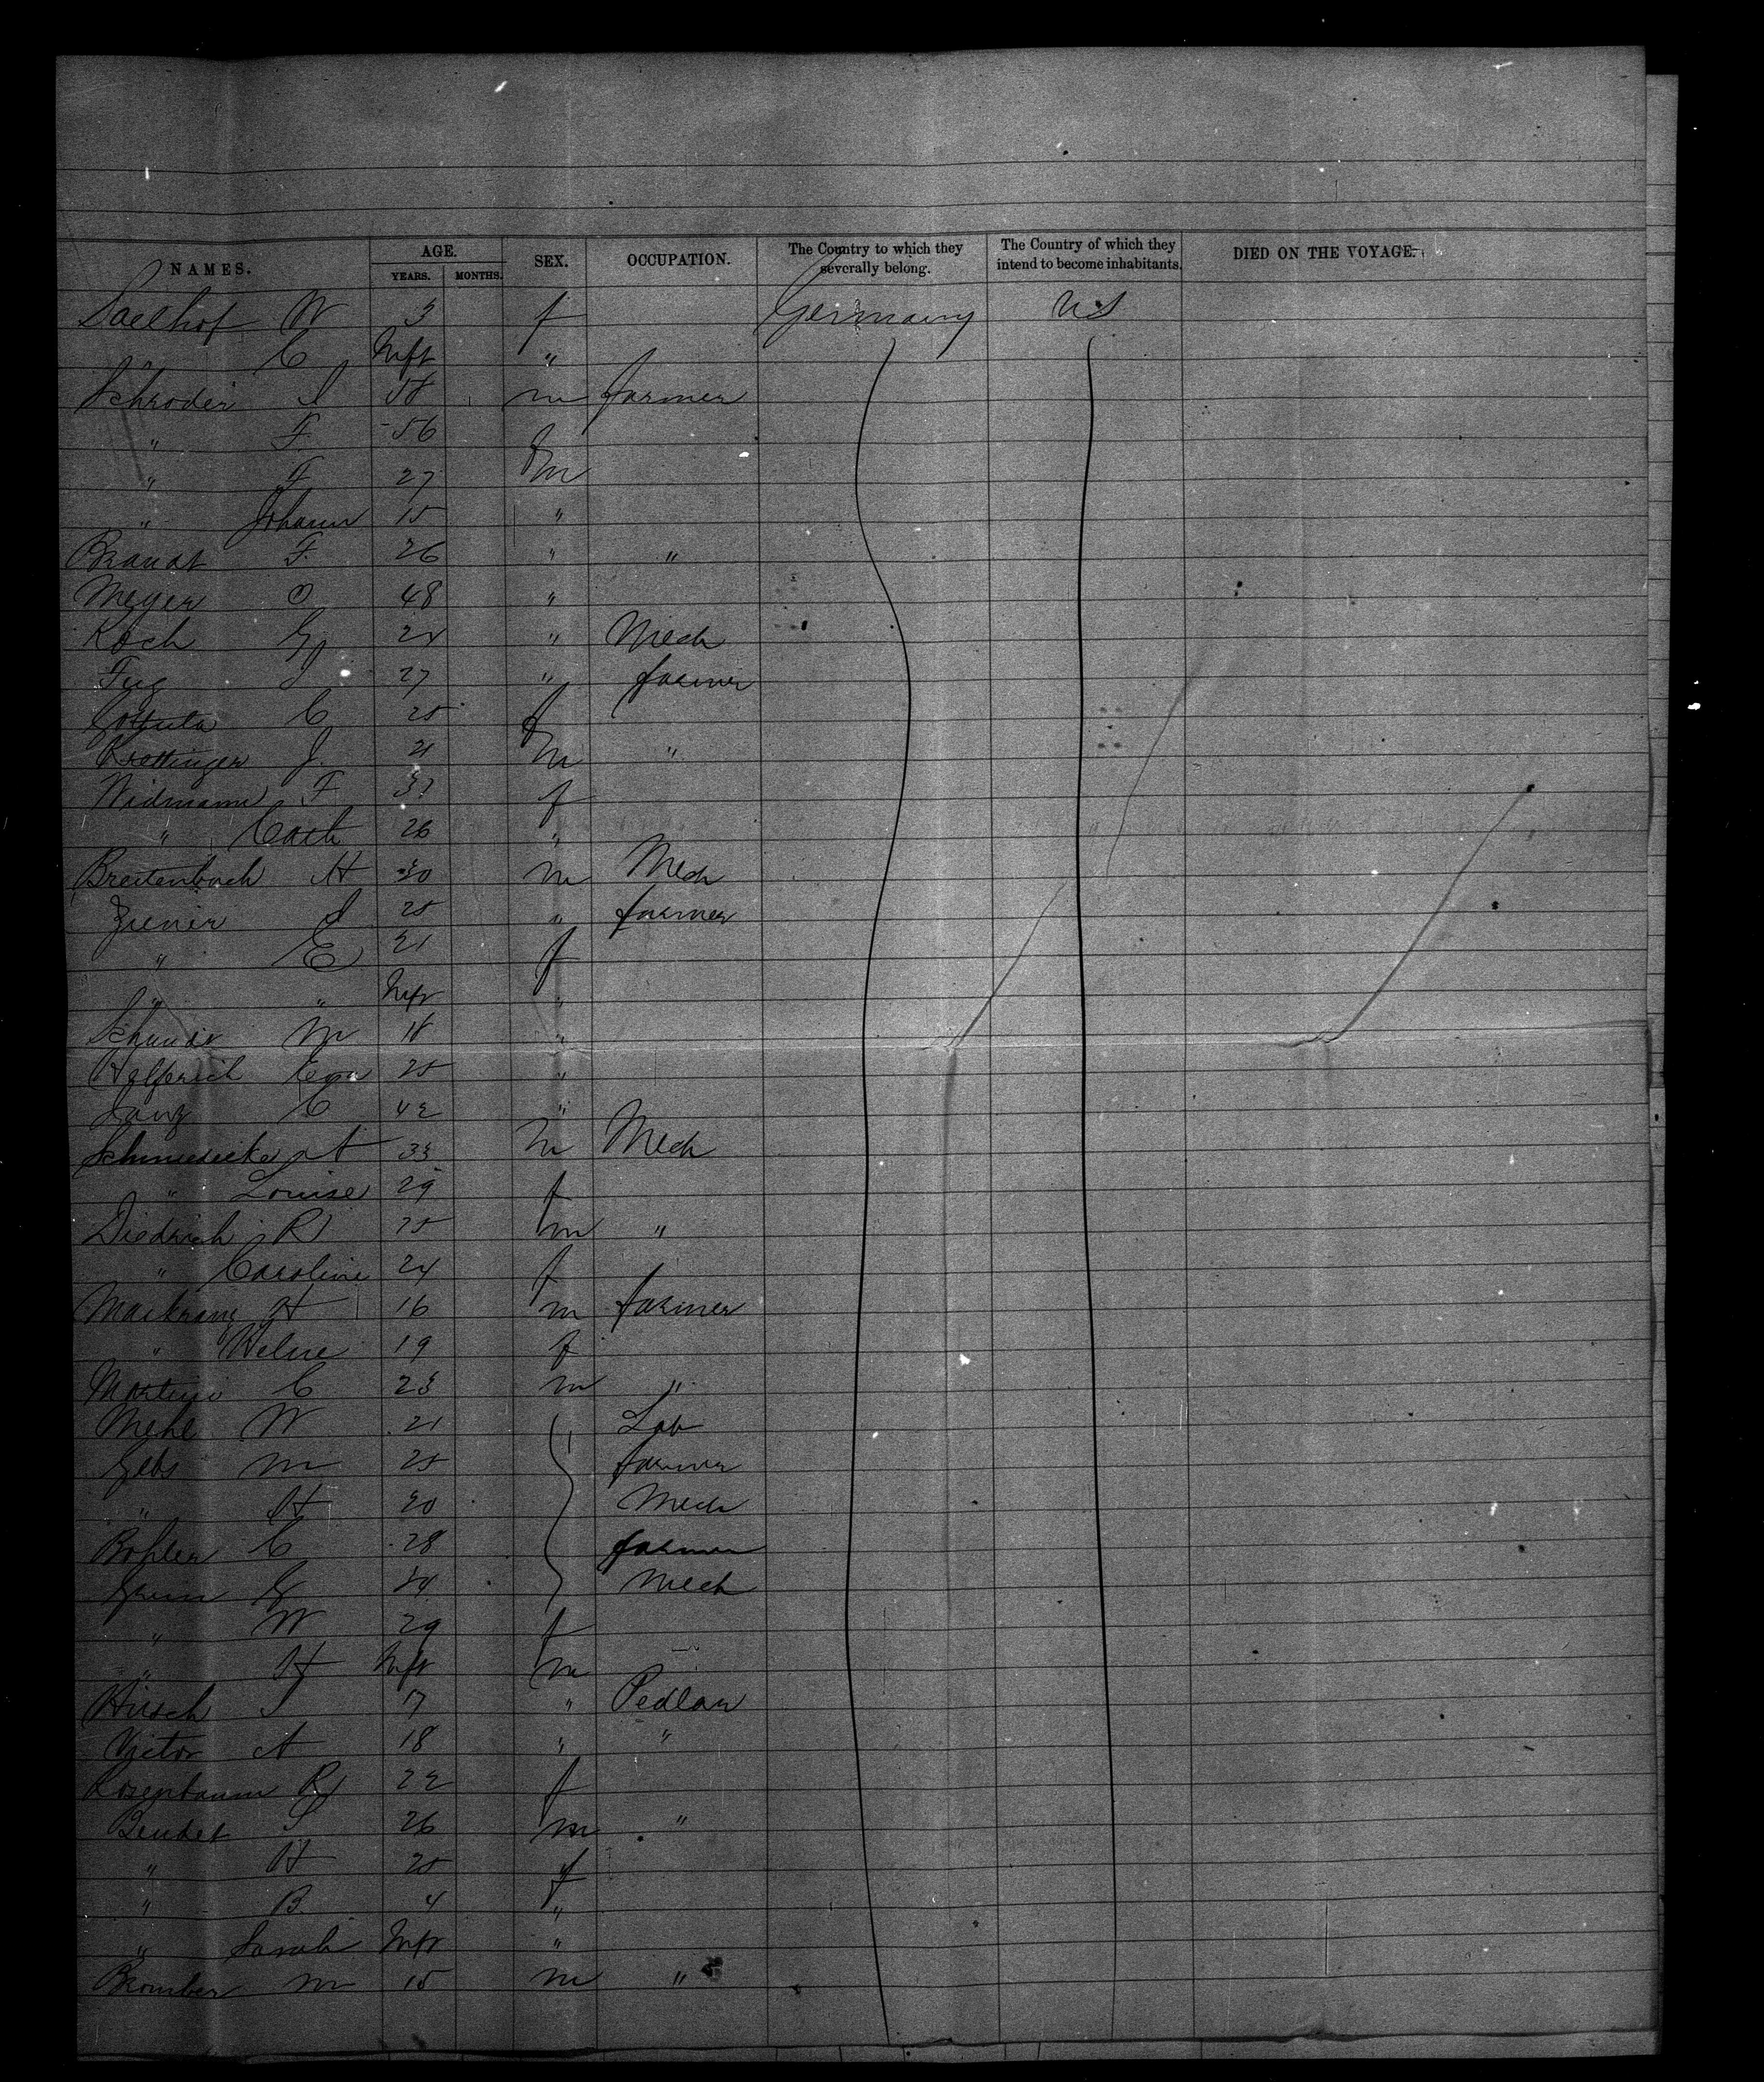 NAMES. AGE. YEARS. MONTHS. SEX. OCCUPATION. The Country to which they severally belong. The Country of which they intend to become inhabitants. DIED ON THE VOYAGE.
Saelhof W 3 f Germany U S
" C Inft "
Schroder J 58 m farmer
" F. 56 f
" F 27 m
" Johann 15 "
Brandt F. 26 " "
Meyer O 48 "
Koch G 24 " Mech
Fug J 27 " farmer
C 25 f
Krettinger J. 21 m "
Widmann F 37 f
" Cath 26 "
Breitenbach H 30 m Mech
Ziener J 25 " farmer
" E 21 f
" " Inft "
M 18 "
Helferich Eva 25 "
Lanz C 42 "
Schmiedicke A 33 m Mech
" Louise 29 f
Diedrich R 25 m "
" Caroline 24 f
Markranz H 16 m farmer
" Helene 19 f
Martini C 23 m "
Mehl W 21 Lab
Gebs M 25 farmer
" H 20 Mech
Bohler C 28 farmer
Grun G 34 Mech
" W 29 f
" H Inft m
Hirsch J 17 " Pedlar
Victor A 18 " "
Rosenbaum R 22 f
Bendet S 26 m "
" H 25 f
" B. 4 "
" Sarah Inft "
Bromber M 15 m "